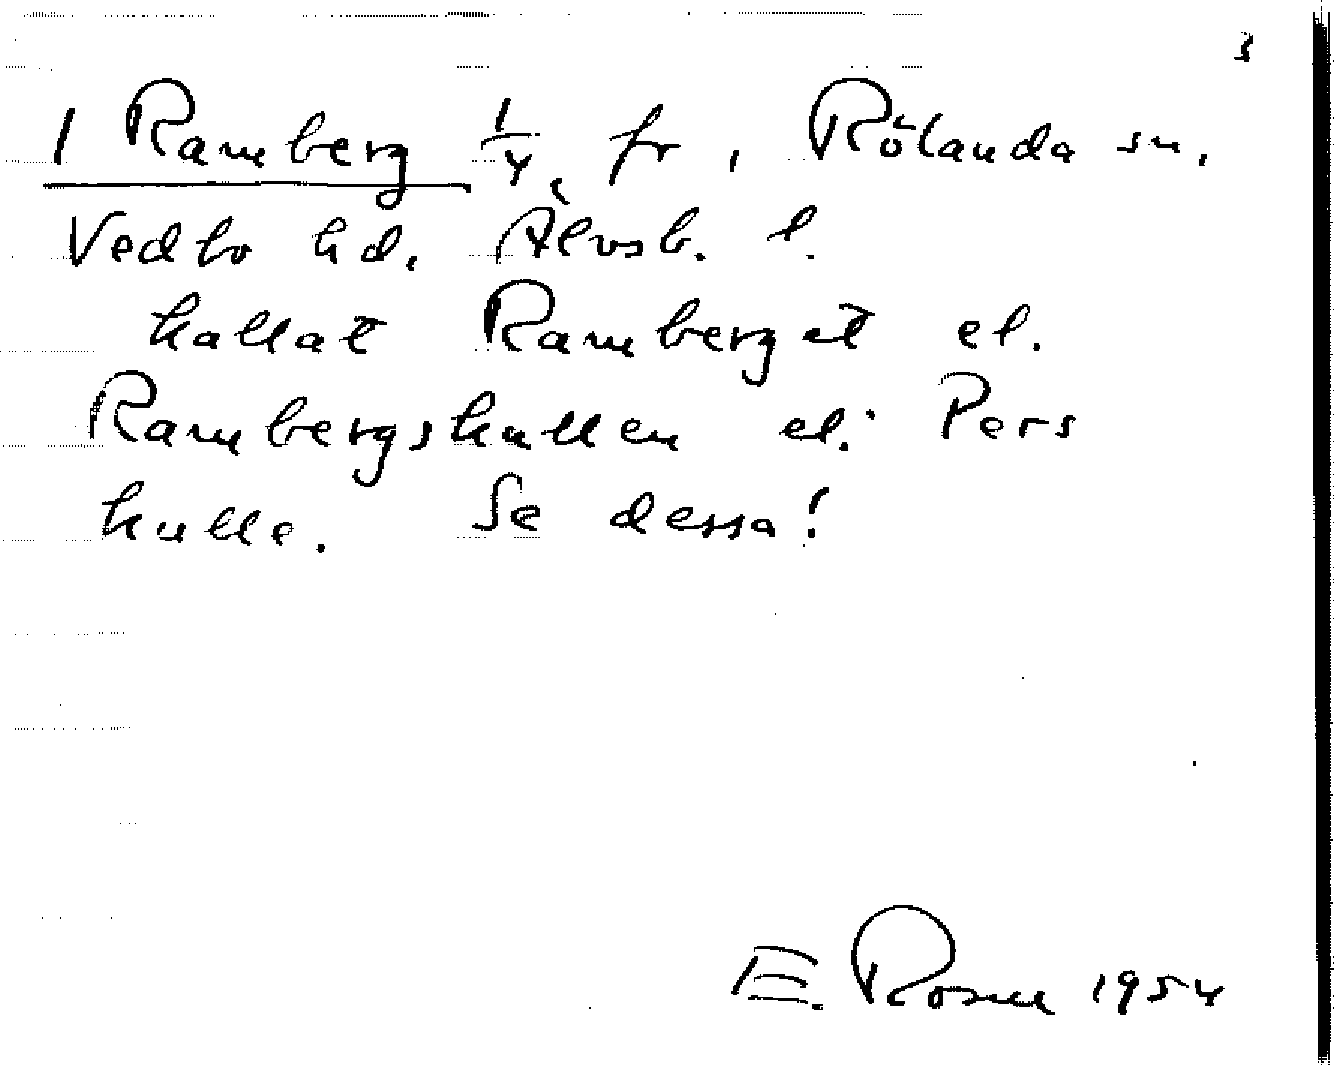 3
1 Ramberg 1/4, fr, Rölanda sn,
Vedbo hd, Älvsb. l.
kallat Ramberget el.
Rambergskullen el. Pers
kulle. Se dessa!
E. Rosell 1954